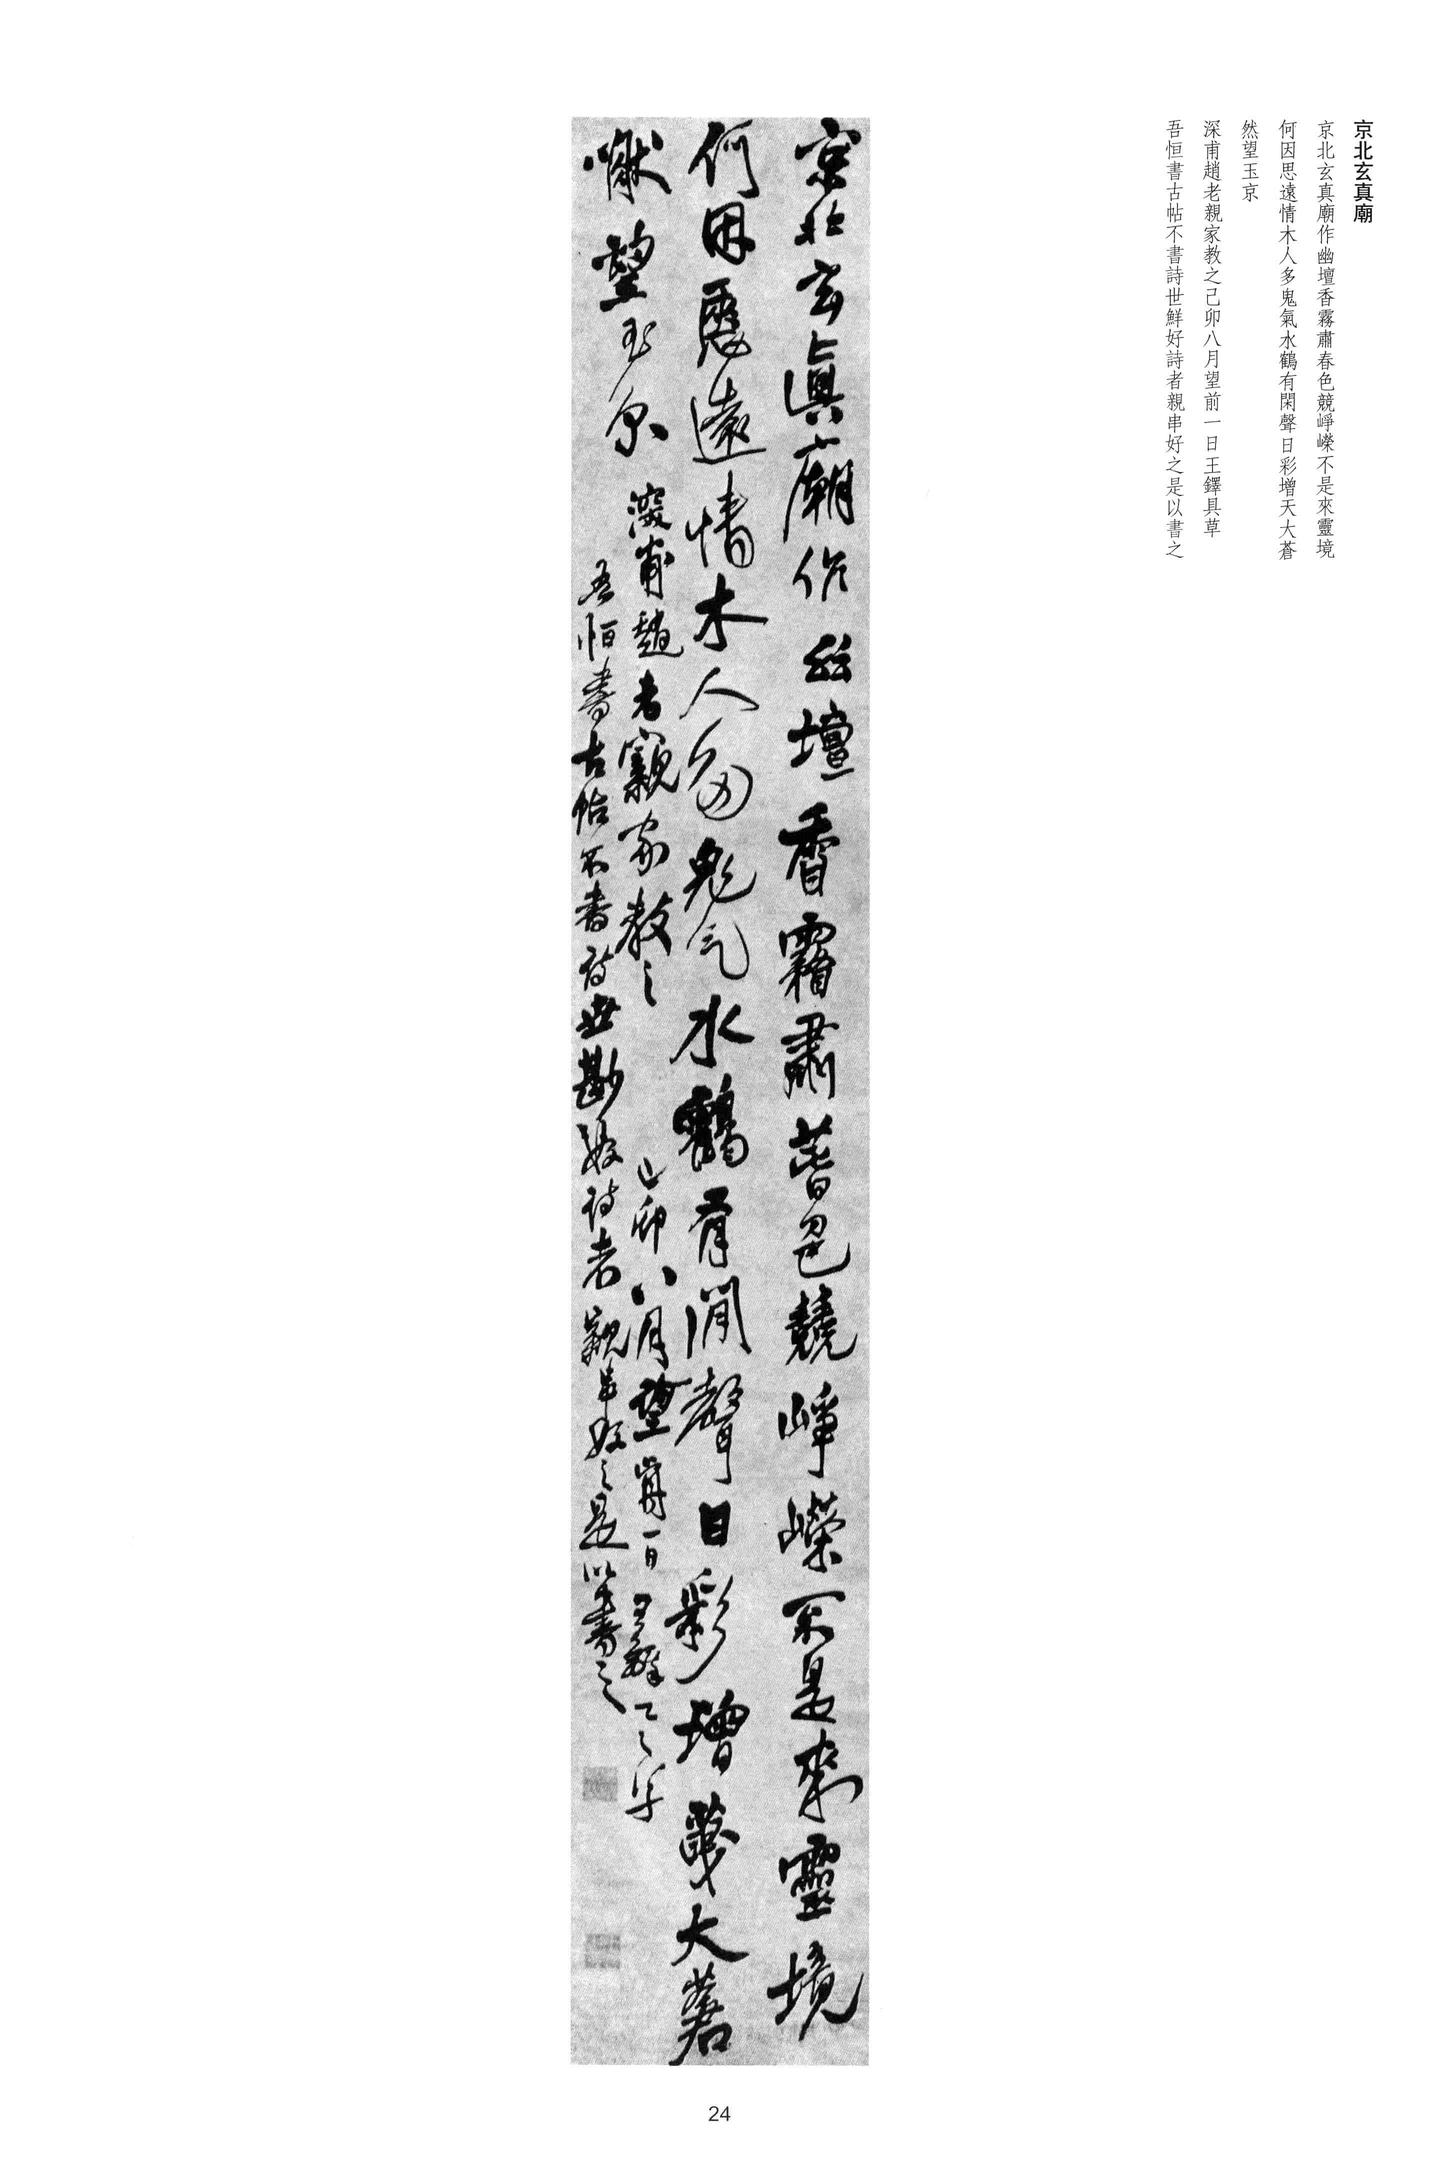 京北玄真廟
京北玄真廟作幽壇香霧肅春色競崢嶸不是來靈境
何因思遠情木人多鬼氣水鶴有閑聲日彩增天大蒼
然望玉京
深甫趙老親家教之己卯八月望前一日王鐸具草
吾恒書古帖不書詩世鮮好詩者親串好之是以書之
京北玄真廟作幽壇香霧肅春色競崢嶸不是來靈境
何因思遠情木人多鬼气水鶴有閒聲日彩增大蒼
望玉京
深甫趙老親家教之己卯八月望前一日王鐸
吾恒書古帖不書詩世尠好詩者親串好之是以書之
24